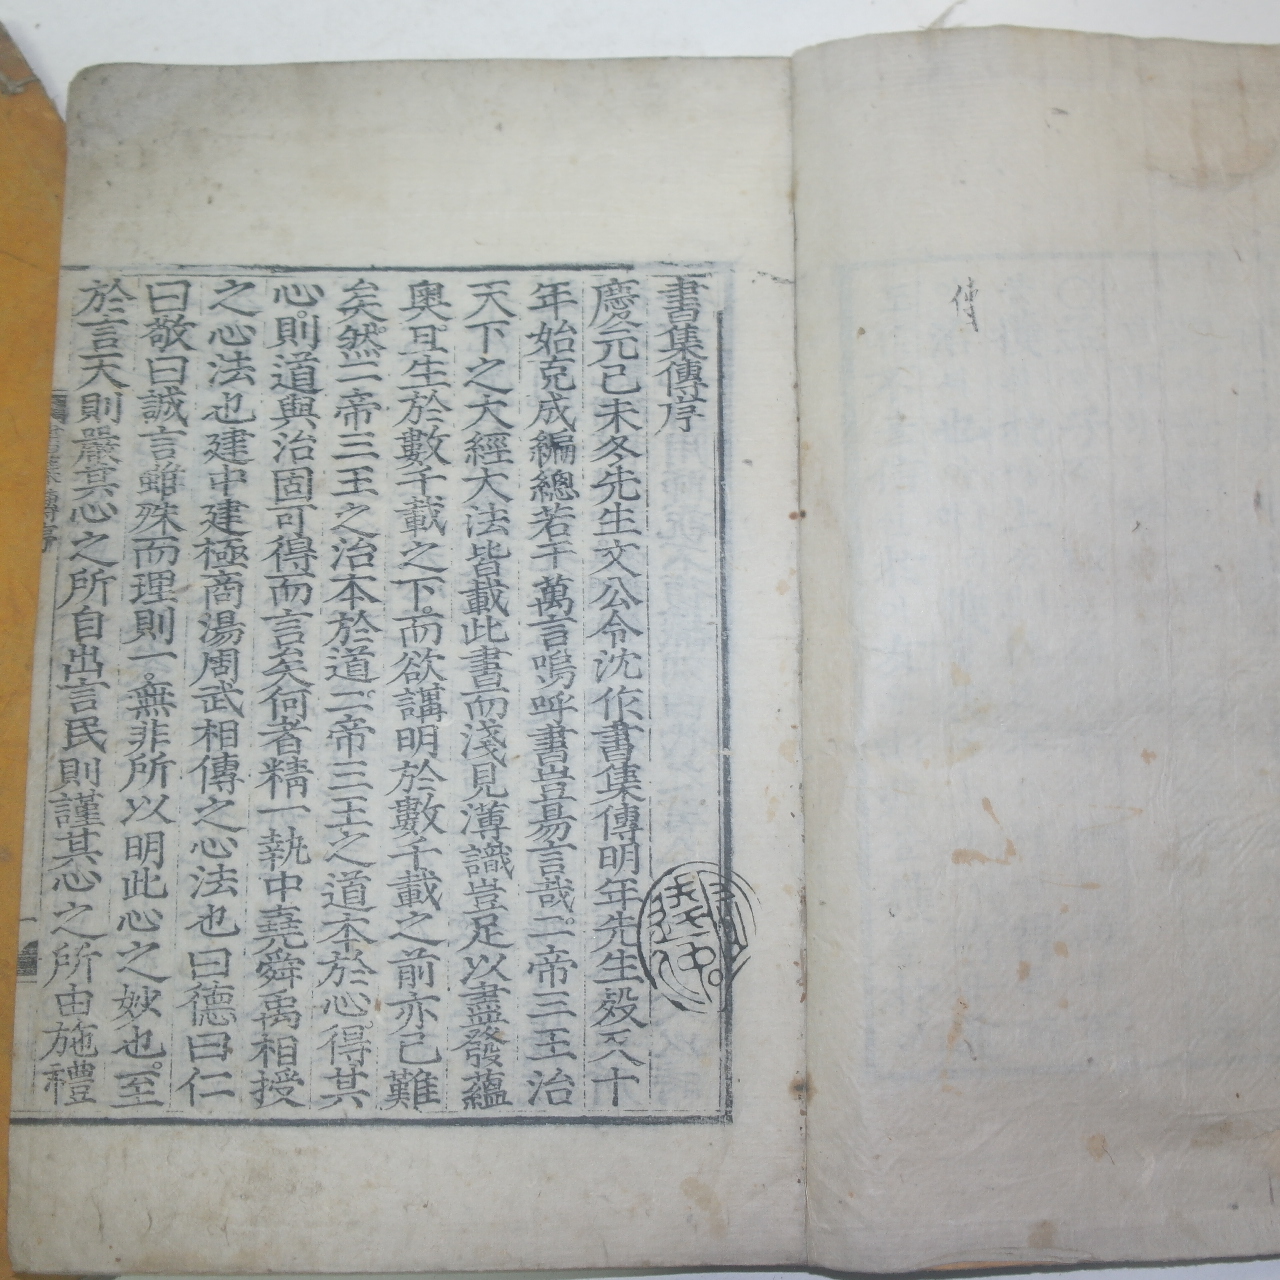 傳
書集傳序
慶元己未冬先生文公令沈作書集傳明年先生歿又十
年始克成編總若干萬言嗚呼書豈易言哉二帝三王治
天下之大經大法皆載此書而淺見薄識豈足以盡發蘊
奧且生於數千載之下而欲講明於數千載之前亦已難
矣然二帝三王之治本於道二帝三王之道本於心得其
心則道與治固可得而言矣何者精一執中堯舜禹相授
之心法也建中建極商湯周武相傳之心法也曰德曰仁
曰敬曰誠言雖殊而理則一無非所以明此心之妙也至
於言天則嚴其心之所自出言民則謹其心之所由施禮
書集傳序
一